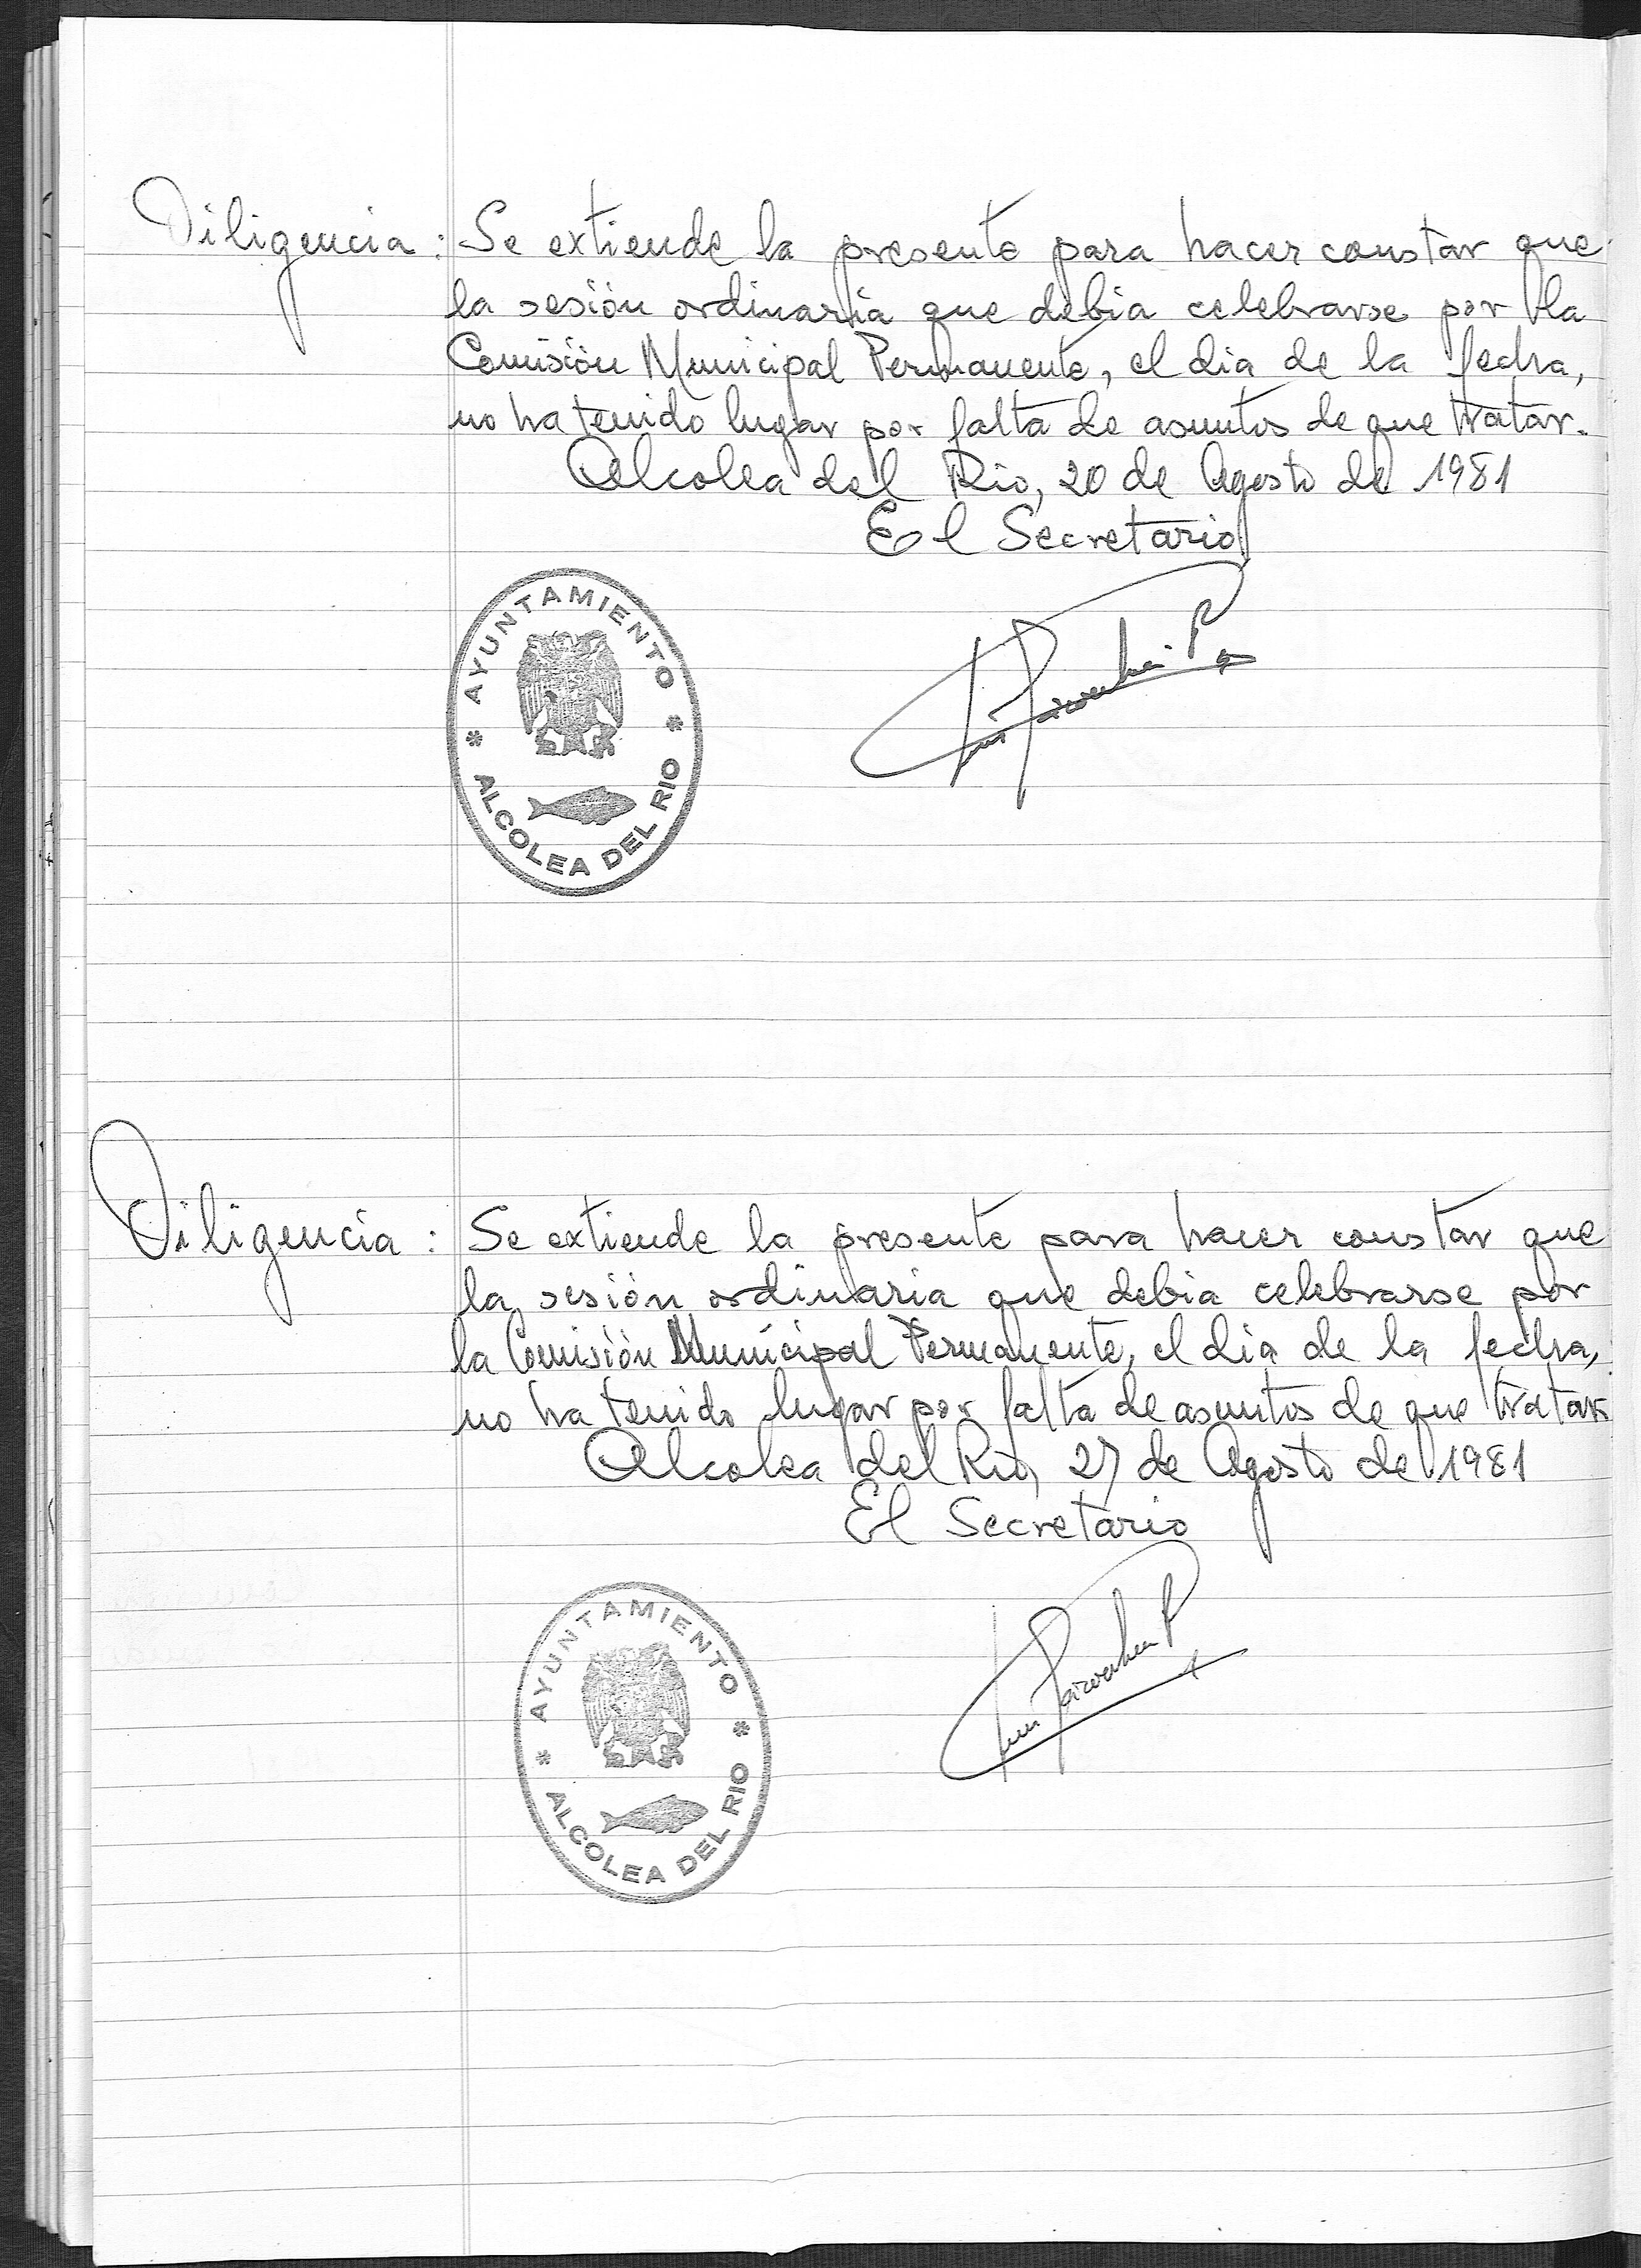 Diligencia: Se extiende la presente para hacer constar que
la sesión ordinaria que debia celebrarse por la
Comisión Municipal Permanente, el dia de la fecha,
no ha tenido lugar por falta de asuntos de que tratar.
Alcolea del Rio, 20 de Agosto de 1981
El Secretario
* AYUNTAMIENTO *
ALCOLEA DEL RIO
Diligencia: Se extiende la presente para hacer constar que
la sesión ordinaria que debia celebrarse por
la Comisión Municipal Permanente, el dia de la fecha,
no ha tenido lugar por falta de asuntos de que tratar
Alcolea del Rio, 27 de Agosto de 1981
El Secretario
* AYUNTAMIENTO *
ALCOLEA DEL RIO